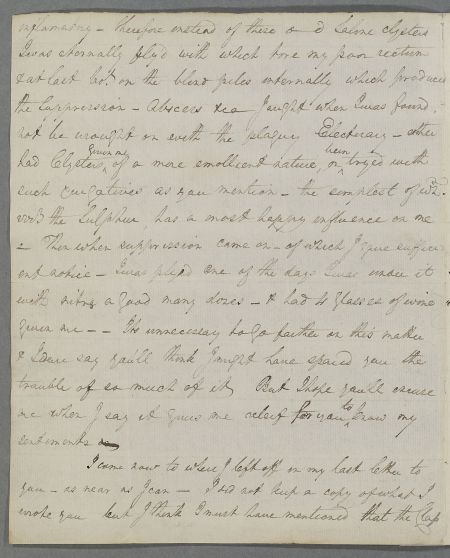 inflamasing - therefore instead of these a d Saline clysters
I was eternally plied with which tore my poor rectum
& at last bro.t on the blind piles internally which produced
the suppression - Abscess &ca I aught when I was found
not be wrought on with the plaguy Electuary - either
had Clysters given me of a more emollient nature, or been tryed with
such purgatives as you mention - the simplest of w.ch
viz.t the Sulphur, has a most happy influence on me
- Then when suppression came on - of which I gave suffici-
ent notice - I was plied one of the days I was under it
with nitre a good many doses - & had 4 glasses of wine
given me - - It's unnecessary to go farther on this matter
& I dare say you'll think I might have spared you the
trouble of so much of it, But I hope you'll excuse
me when I say it gives me relief for you to know my
sentiments
I come now to where I left off in my last letter to
you - as near as I can - I did not keep a copy of what I
wrote you but I think I must have mentioned that the Clap